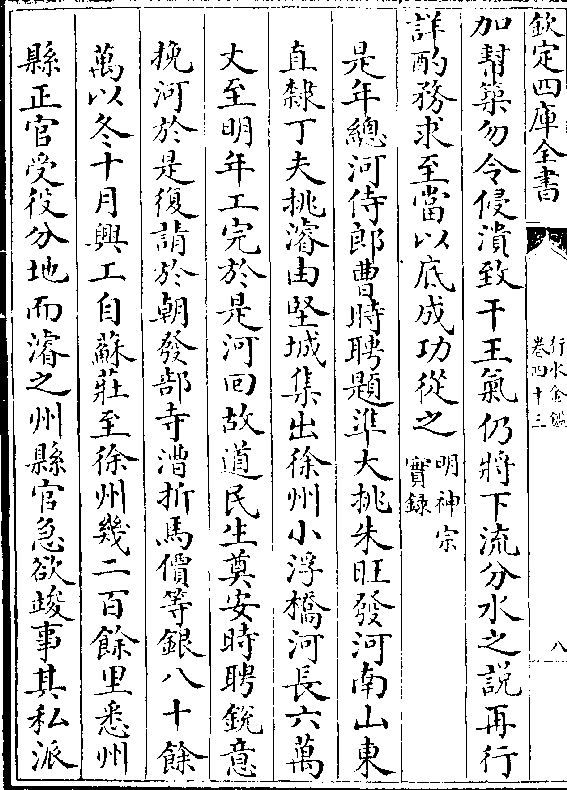 欽定四庫全書
行水金鑑
卷四十三
八
加幇築勿令侵潰致干王氣仍將下流分水之説再行
詳酌務求至當以底成功從之明神宗實録
是年總河侍郎曹時聘題準大挑朱旺發河南山東
直隸丁夫挑濬由堅城集出徐州小浮橋河長六萬
丈至明年工完於是河回故道民生奠安時聘銳意
挽河於是復請於朝發部寺漕折馬價等銀八十餘
萬以冬十月興工自蘇莊至徐州幾二百餘里悉州
縣正官受役分地而濬之州縣官急欲竣事其私派